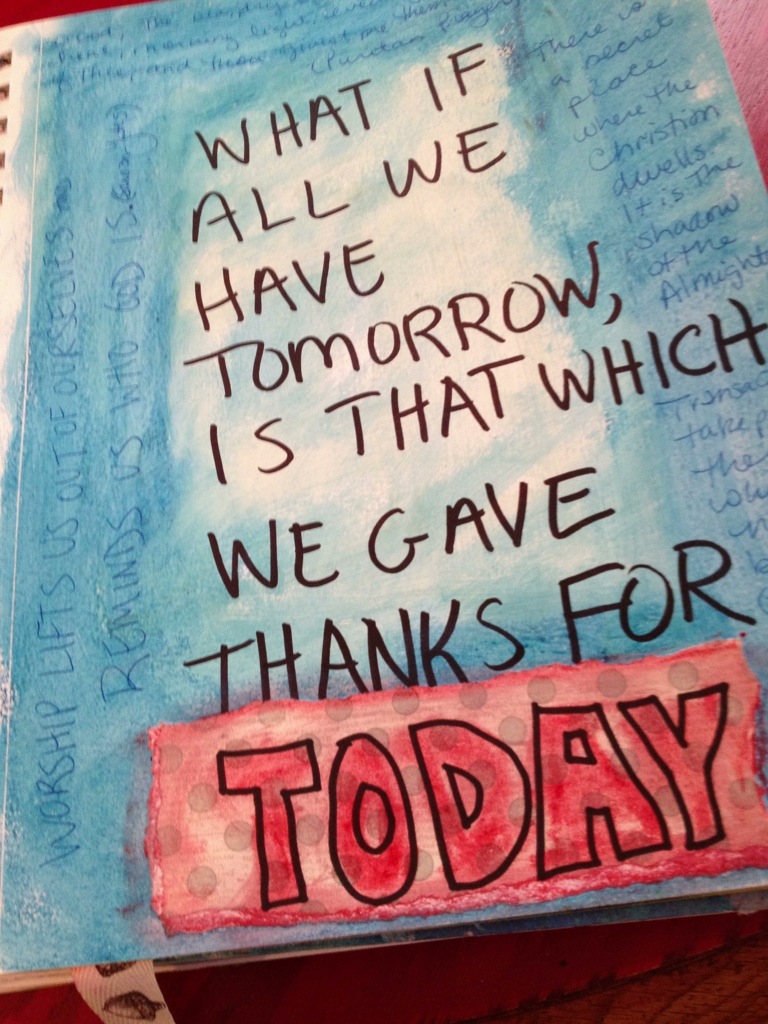 morning light,
(Puritan Prayer)
WHAT IF
ALL WE
HAVE
TOMORROW,
IS THAT WHICH
WE GAVE
THANKS FOR
TODAY
There is
a secret
place
where the
Christian
dwells.
It is the
shadow
of the
Almight
take
the
WORSHIP LIFTS US OUT OF OURSELVES
REMINDS US WHO GOD IS.